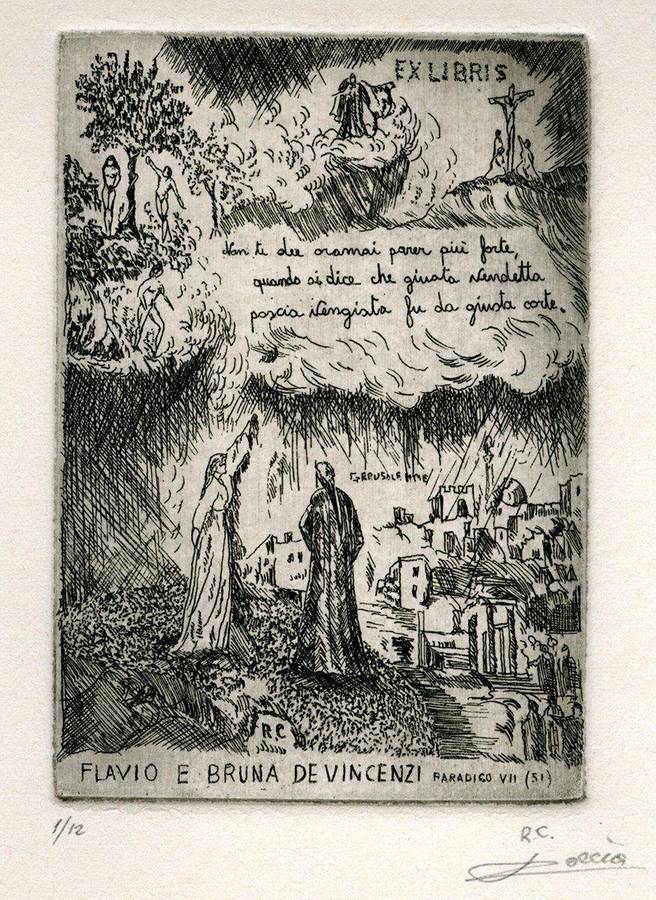 EX LIBRIS
Non ti dee oramai parer più forte,
quando si dice che giusta vendetta
poscia vengiata fu da giusta corte.
GERUSALEMME
R C
FLAVIO E BRUNA DE VINCENZI PARADISO VII (51)
1/12
R.C.